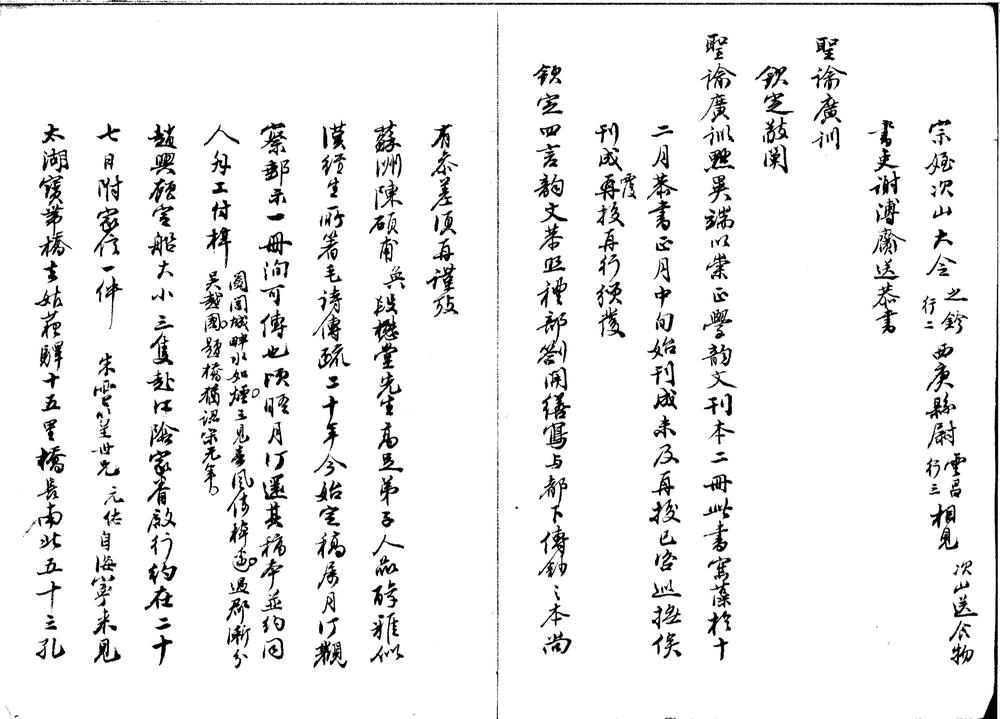 宗姪次山大令之鈐行二西庚縣尉雲昌行三相見次山送食物
書吏謝溥齋送恭書
聖諭廣訓
欽定敬闡
聖諭廣訓黜異端以崇正學韵文刊本二冊此書寫藁於十
二月恭書正月中旬始刊成未及再校已咨巡撫俟
刊成覆再校再行頒覆
欽定四言韵文恭照禮部劄開繕寫与都下傳鈔之本尚
有叅差須再謹攷
蘇洲陳碩甫奐段懋堂先生高足弟子人品醇雅似
漢經生所著毛詩傳疏二十年今始定稿属月汀觀
察郵示一冊洵可傳也頃晤月汀還其稿本並約同
人匄工付梓
圚閶城畔水如煙三見春風倚棹還過郡漸分
吳越圃題橋猶認宋元年
趙興顧定船大小三隻赴江陰家眷啟行約在二十
七日附家信一件 朱雲篁世兄元佐自海寧来見
太湖寶帶橋去姑蘇驛十五里橋長南北五十三孔